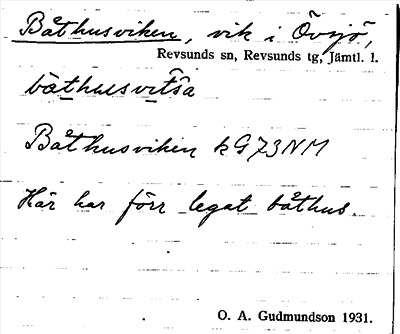 Båthusviken, vik i Övsjö,
Revsunds sn, Revsunds tg, Jämtl. l.
Båthusviken kG73NM
Här har förr legat båthus.
O. A. Gudmundson 1931.